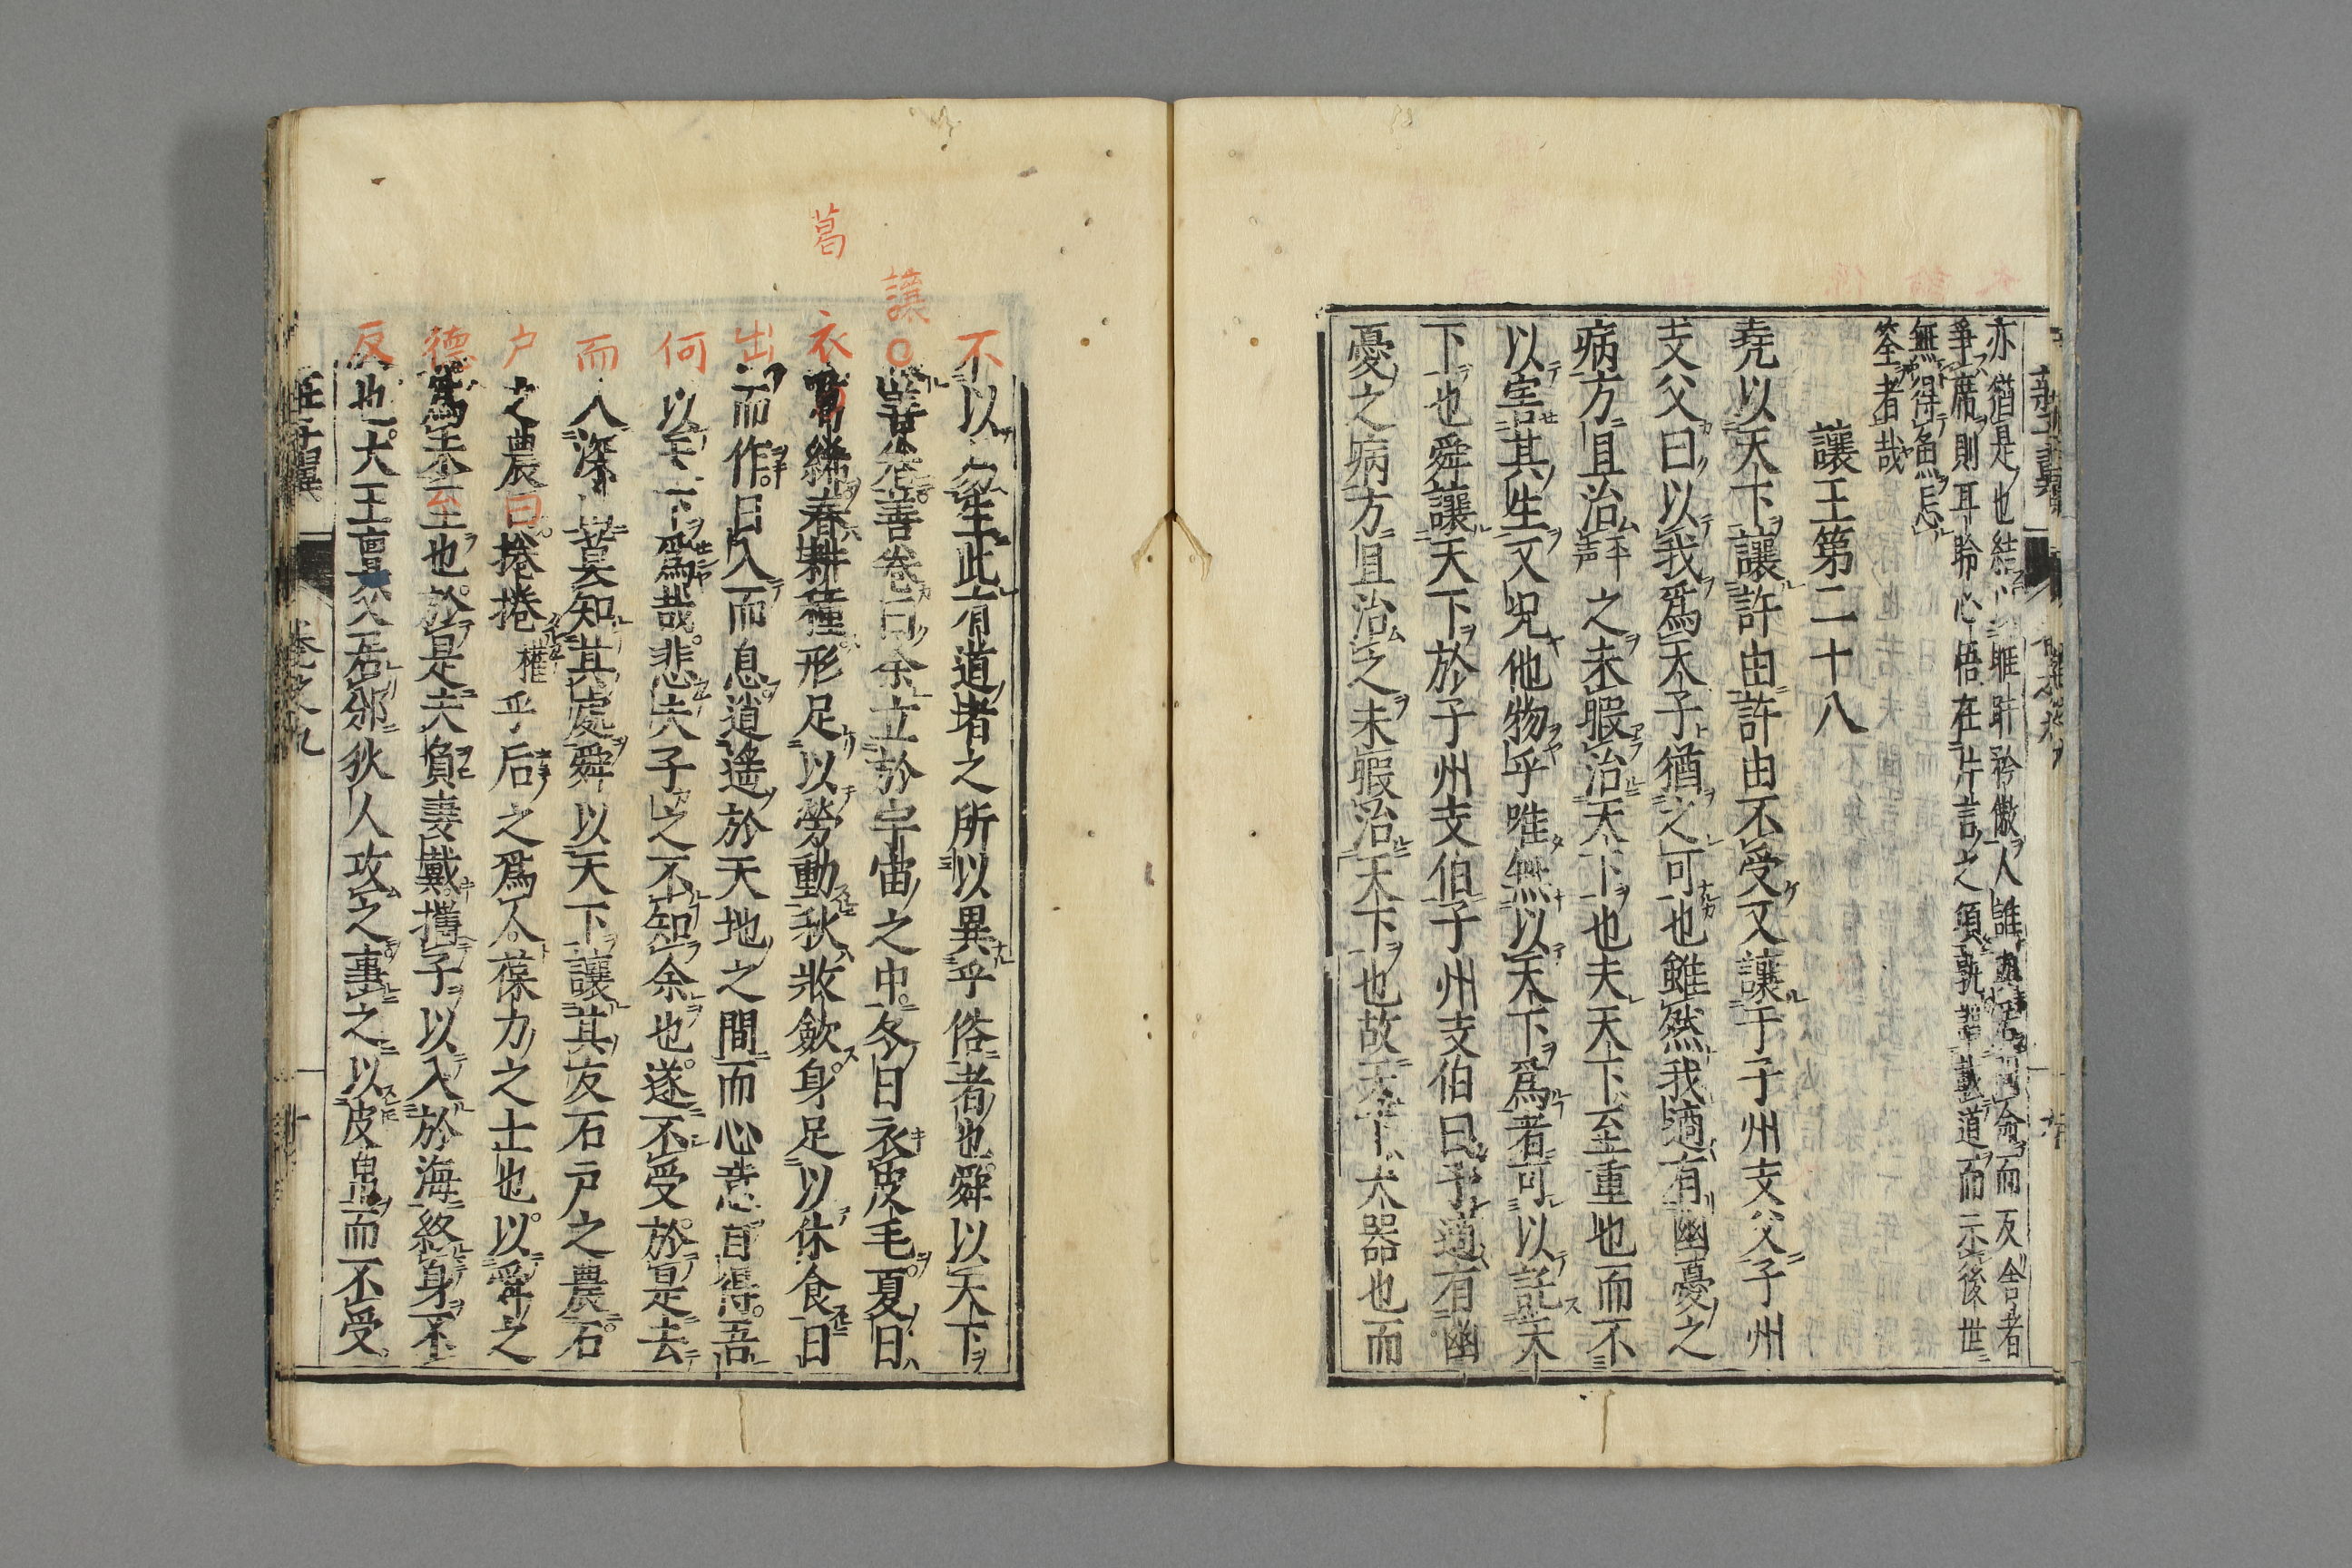 亦猶是也結 睢盱矜傲人誰 舍而反舍者
爭席則耳聆心悟在片言之頃孰 戴道而示後世
無得魚忘
筌者哉
讓王第二十八
堯以天下讓許由許由不受又讓于子州支父子州
支父曰以我爲天子猶之可也雖然我適有幽憂之
病方且治平声之未暇治天下也夫天下至重也而不
以害其生又况他物乎唯無以天下爲者可以託天
下也舜讓天下於子州支伯子州支伯曰予適有幽
憂之病方且治之未暇治天下也故天下大器也而
不以易生此有道者之所以異乎俗者也舜以天下
讓善卷善卷曰余立於宇宙之中冬日衣皮毛夏日
衣葛絺春耕種形足以勞動秋收斂身足以休食日
出而作日入而息逍遙於天地之間而心意自得吾
何以天下爲哉悲夫子之不知余也遂不受於是去
而入深山莫知其處舜以天下讓其友石戶之農石
戶之農曰捲捲權乎后之爲人葆力之士也以舜之
德爲未至也於是夫負妻戴攜子以入於海終身不
反也大王亶父居邠狄人攻之事之以皮帛而不受
莊子翼 卷之九 十